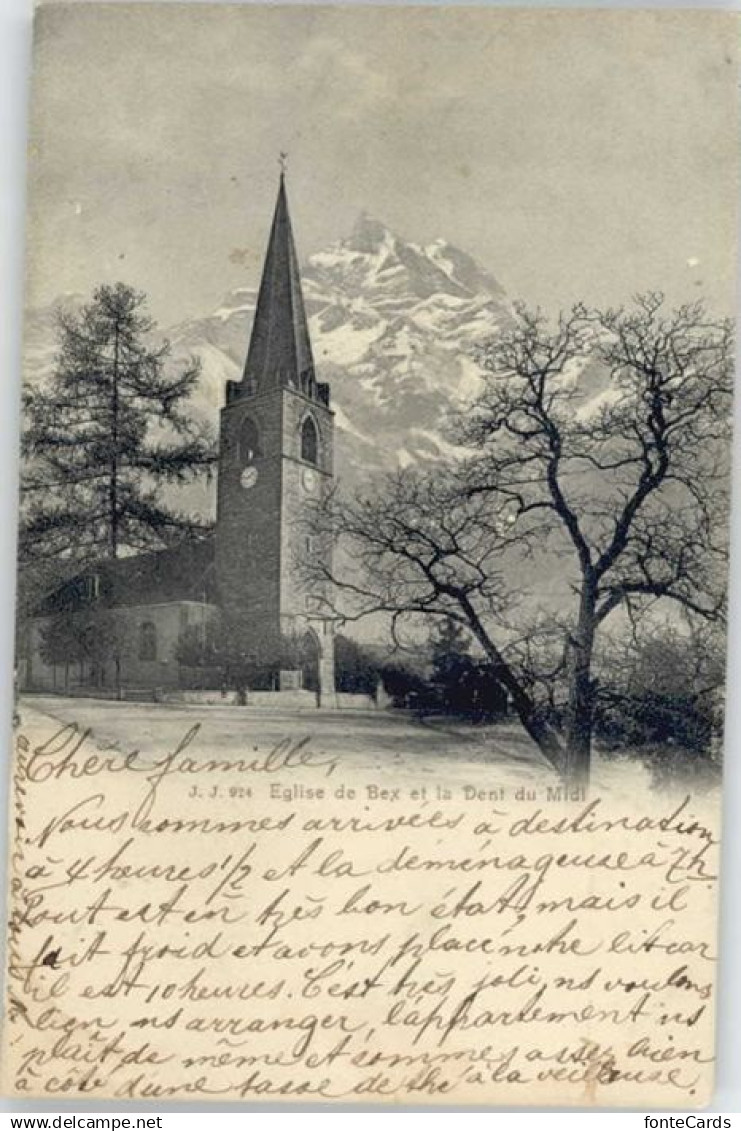 Chère famille,
J. J. 924 Eglise de Bex et la Dent du Midi
Nous sommes arrivées à destination
à 4 heures 1/2 et la déménageuse à 7h
Tout est en très bon état, mais il
fait froid et avons placé notre lit car
il est 10 heures. C'est très joli, ns voulons
bien ns arranger, l'appartement ns
plaît de même et sommes assez bien
à côté d'une tasse de thé à la veilleuse.
fonteCards
www.delcampe.net
FonteCards